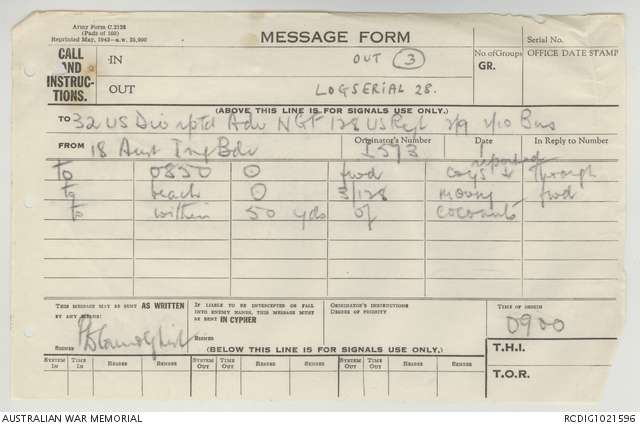 Army Form C.2128
(Pads of 100)
Reprinted May, 1943—a.w. 35,000
MESSAGE FORM
Serial No.
CALL AND INSTRUCTIONS.
IN
OUT 3
No. of Groups
GR.
OFFICE DATE STAMP
OUT
LOG SERIAL 28.
(ABOVE THIS LINE IS FOR SIGNALS USE ONLY.)
TO 32 US Div rptd Adv NGF 128 US Regt 2/9 2/10 Bns
FROM 18 Aust Inf Bde
Originator's Number
I573
Date
1
In Reply to Number
reported
to 0850 O fwd coys through
to beach O 3/128 moving fwd
to within 50 yds of coconuts
THIS MESSAGE MAY BE SENT AS WRITTEN BY ANY MEANS:
IF LIABLE TO BE INTERCEPTED OR FALL INTO ENEMY HANDS, THIS MESSAGE MUST BE SENT IN CYPHER
ORIGINATOR'S INSTRUCTIONS
DEGREE OF PRIORITY
TIME OF ORIGIN
0900
SIGNED
SIGNED
(BELOW THIS LINE IS FOR SIGNALS USE ONLY.)
T.H.I.
SYSTEM IN
TIME IN
READER
SENDER
SYSTEM OUT
TIME OUT
READER
SENDER
SYSTEM OUT
TIME OUT
READER
SENDER
T.O.R.
AUSTRALIAN WAR MEMORIAL
RCDIG1021596